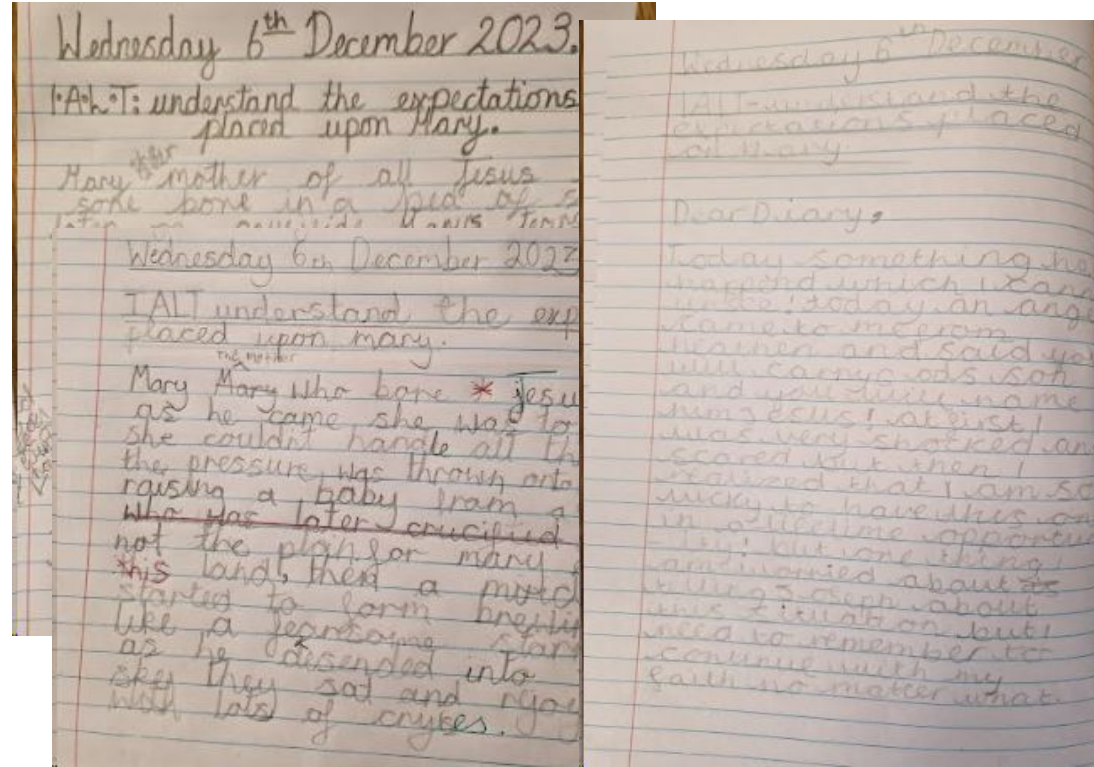 Wednesday 6th December 2023.
I.A.L.T: understand the expectations
placed upon Mary.
Mary mother of all Jesus
bone in a of
Wednesday 6th December 2023
IALT understand the exp
placed upon mary.
The mother
Mary Mary who bore * Jesu
as he came she was to
she couldnt handle all th
the pressure was thrown onto
raising a baby from a
who was later crucified
not the plan for mary
*his land, then a
started to form
like a fearsome star
as he disended into
sky they sat and
with lots of
Wednesday 6th December
IALT understand the
expectations placed
on Mary.
Dear Diary,
Today something ha
happend which I cann
today an ang
came to me from
heathen and said you
will carry gods son
and you name
Jesus! at first I
was very shocked an
scared but then I
realized that I am so
lucky to have this on
in a lifetime opportu
but one thing I
am worried about
about
this situation but I
need to remember to
continue with my
faith no matter what.